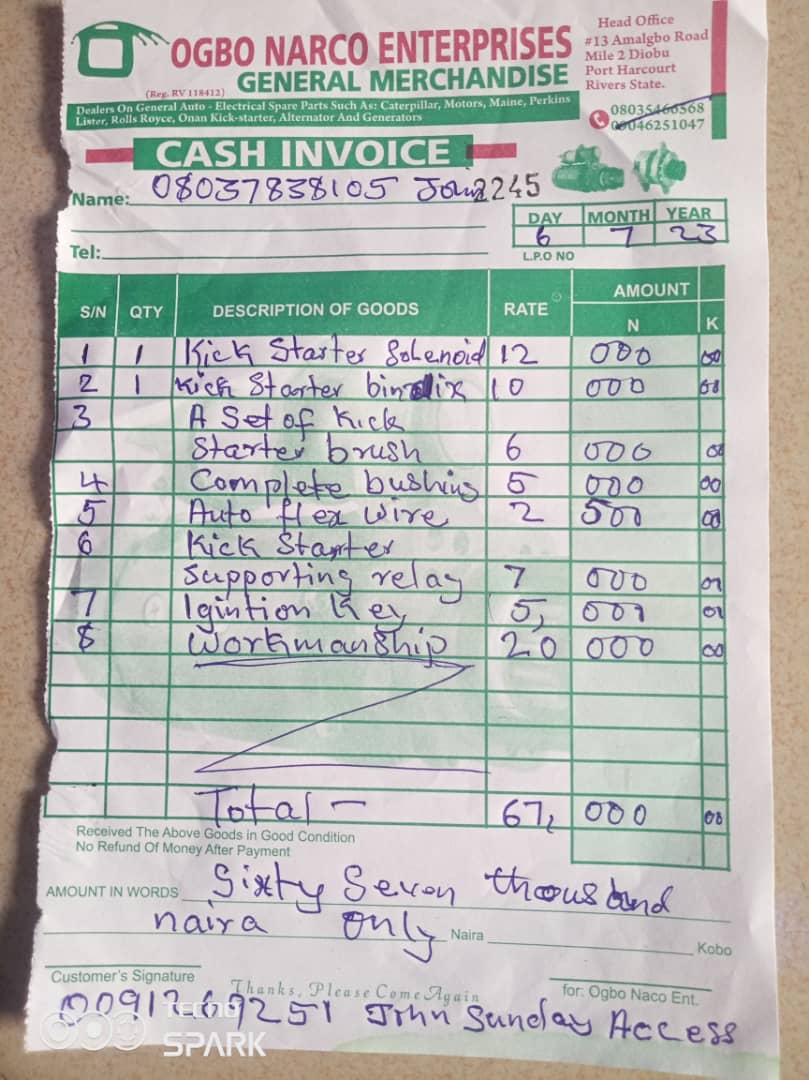 OGBO NARCO ENTERPRISES
(Reg. RV 118412) GENERAL MERCHANDISE
Dealers On General Auto - Electrical Spare Parts Such As: Caterpillar, Motors, Maine, Perkins
Lister, Rolls Royce, Onan Kick-starter, Alternator And Generators
Head Office
#13 Amalgbo Road
Mile 2 Diobu
Port Harcourt
Rivers State.
08035466568
09046251047
CASH INVOICE
Name: 08037838105 2245
Tel:
DAY MONTH YEAR
6 7 23
L.P.O NO
S/N QTY DESCRIPTION OF GOODS RATE AMOUNT
N K
1 1 Kick Starter Solenoid 12 000 00
2 1 Kick Starter bindix 10 000 00
3 A Set of Kick
Starter brush 6 000 00
4 Complete bushing 5 000 00
5 Auto flex wire 2 500 00
6 Kick Starter
supporting relay 7 000 00
7 Igintion Key 5, 000 00
8 Workmanship 20 000 00
Total - 67, 000 00
Received The Above Goods in Good Condition
No Refund Of Money After Payment
AMOUNT IN WORDS Sixty Seven thousand
naira only Naira Kobo
Customer's Signature
Thanks, Please Come Again
for: Ogbo Naco Ent.
0091269251 John Sunday Access
TECNO
SPARK